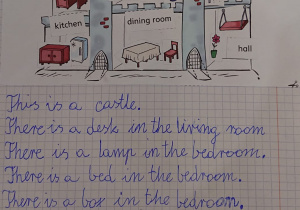 kitchen
dining room
hall
This is a castle.
There is a desk in the living room
There is a lamp in the bedroom.
There is a bed in the bedroom.
There is a box in the bedroom.